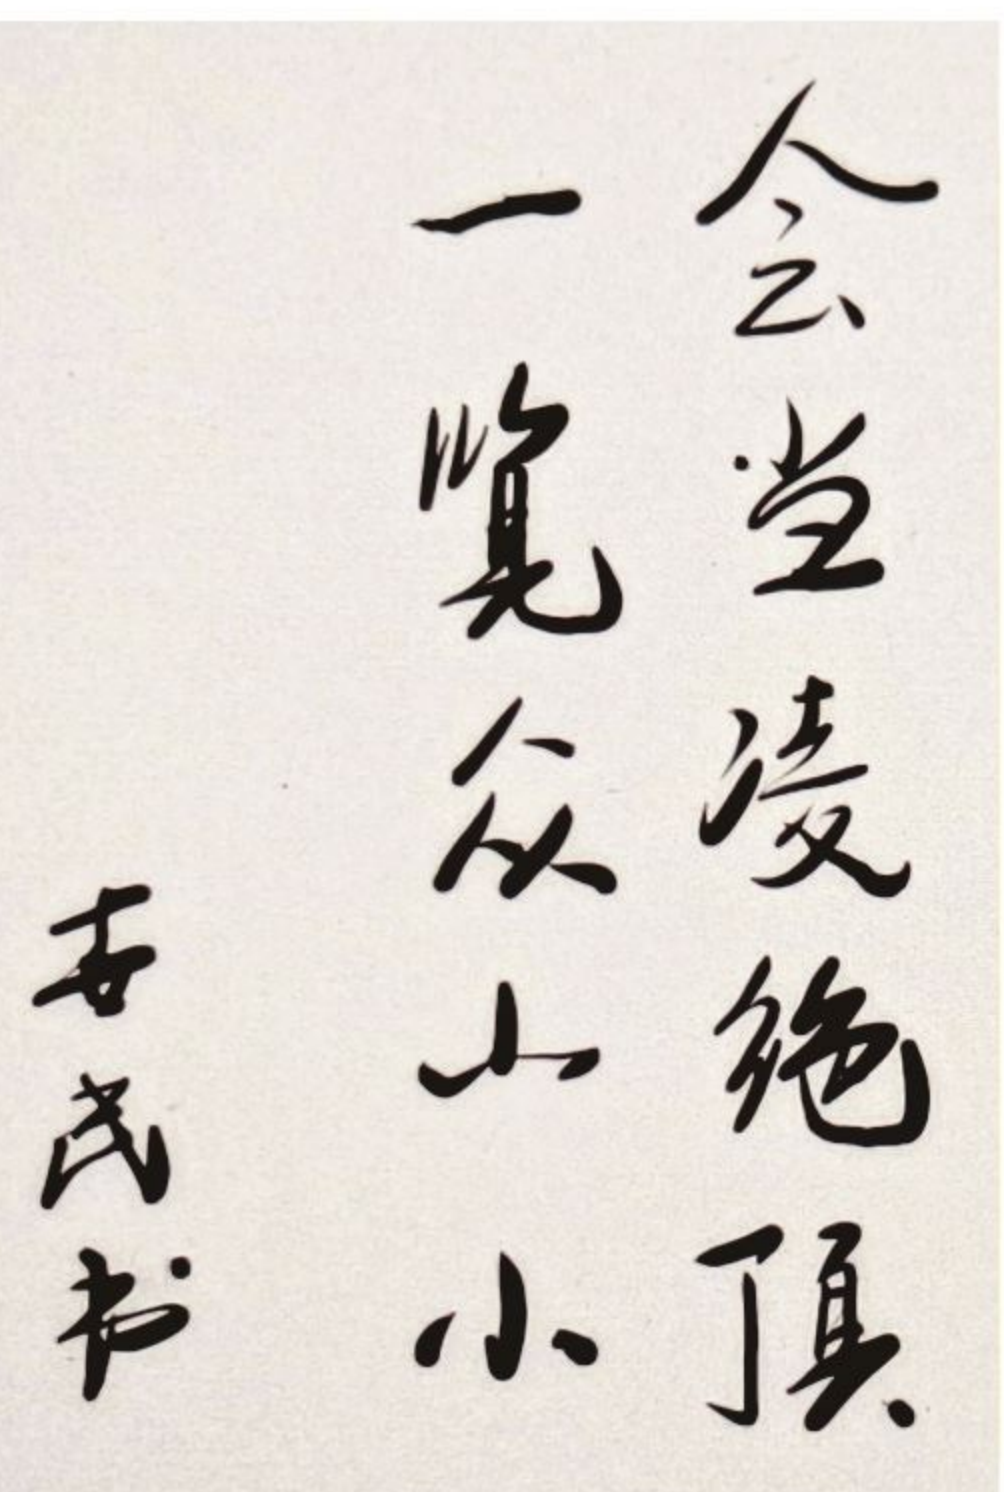 会当凌绝顶
一览众山小
志民书